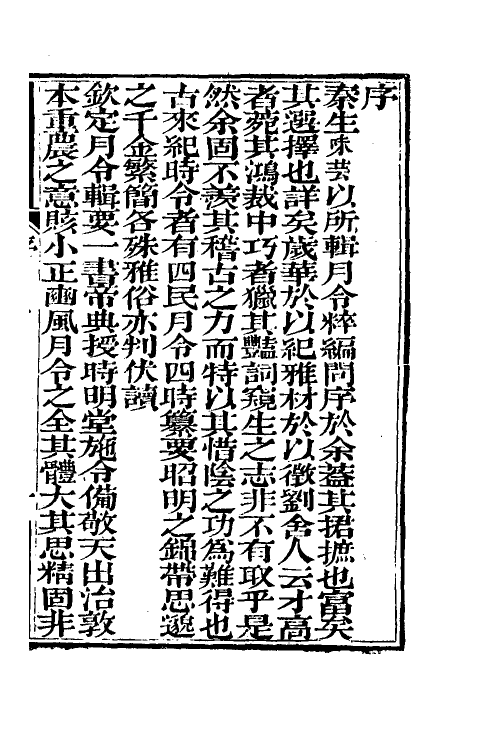 序
秦生味芸以所輯月令粹編問序於余蓋其捃摭也富矣
其選擇也詳矣歲華於以紀雅材於以徵劉舍人云才高
者菀其鴻裁中巧者獵其豔詞窺生之志非不有取乎是
然余固不羨其稽古之力而特以其惜陰之功為難得也
古來紀時令者有四民月令四時纂要昭明之錦帶思邈
之千金繁簡各殊雅俗亦判伏讀
欽定月令輯要一書帝典授時明堂施令備敬天出治敦
本重農之意賅小正豳風月令之全其體大其思精固非
序
一